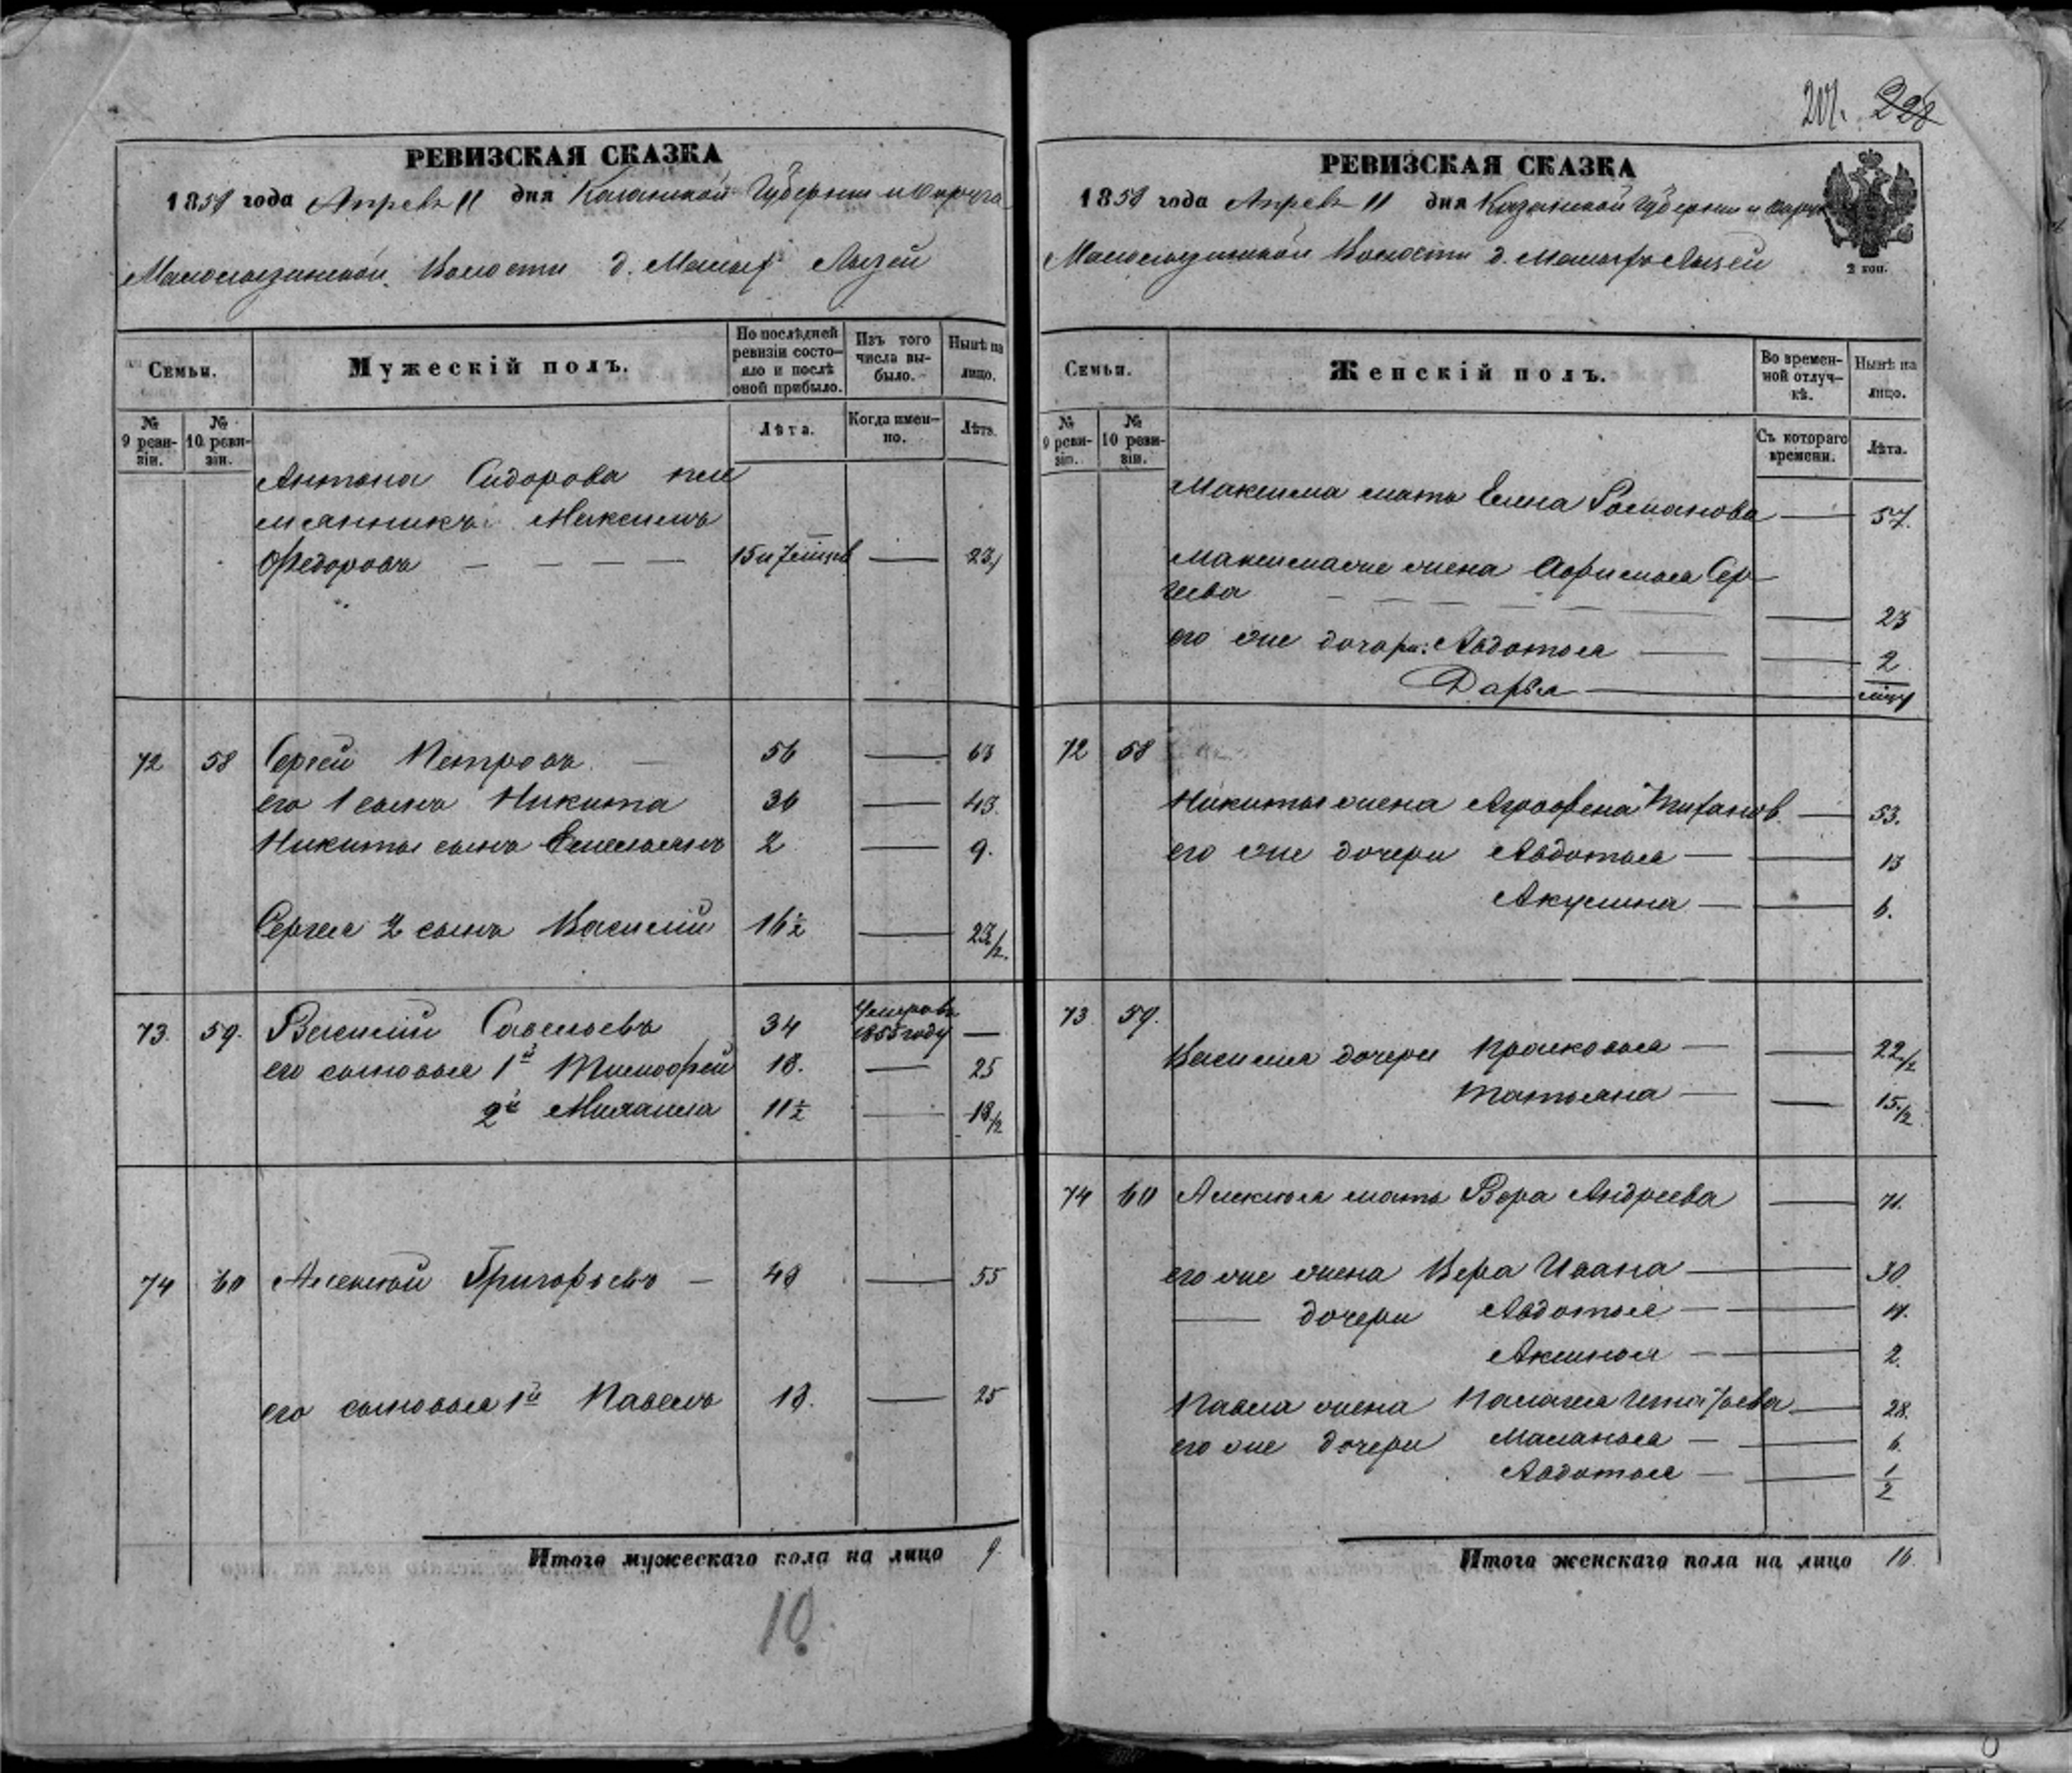 РЕВИЗСКАЯ СКАЗКА
1858 года Апреля 11 дня Казанской Губернии и Округа
Малолызинской Волости д. Малых Лызей
Семьи.
Мужескій полъ.
По послѣдней ревизіи состояло и послѣ оной прибыло.
Изъ того числа выбыло.
Нынѣ на лицо.
№ 9 ревизіи.
№ 10 ревизіи.
Лѣта.
Когда именно.
Лѣта.
Антона Сидорова пле
мянникъ Максимъ
Федоровъ — — — — 15 и 7 мцов — 23
72 58 Сергей Петровъ — 56 — 63
его 1 сынъ Никита 36 — 43.
Никиты сынъ Емельянъ 2 — 9.
Сергея 2 сынъ Василий 16 1/2 — 23 1/2.
73. 59. Василий Савельевъ 34 Умеръ въ 1855 году —
его сыновья 1й Тимофей 18. — 25
2й Михаила 11 1/2 — 18 1/2
74 60 Алексей Григорьевъ — 48 — 55
его сыновья 1й Павелъ 18. — 25
Итого мужескаго пола на лицо 9.
10.
207. 228
РЕВИЗСКАЯ СКАЗКА
1858 года Апреля 11 дня Казанской Губернии и Округа
Малолызинской Волости д. Малыхъ Лызей
2 коп.
Семьи.
Женскій полъ.
Во временной отлучкѣ.
Нынѣ на лицо.
№ 9 ревизіи.
№ 10 ревизіи.
Съ котораго времени.
Лѣта.
Максима мать Елена Романова — 57.
Максима же жена Афимья Сер
геева — 23
его же дочери: Авдотья — 2.
Дарья —
72 58
Никиты жена Аграфена — 53.
его же дочери Авдотья — 13
Акулина — 6.
73 59.
Василия дочери Прасковья — 22 1/2
Татьяна — 15 1/2
74 60 Алексея мать Вера Андреева — 71.
его же жена Вера Ивана — 30.
— дочери Авдотья — 4.
Аксинья — 2.
Павла жена Палагея — 28.
его же дочери Маланья — 6.
Авдотья — 1/2
Итого женскаго пола на лицо 16.